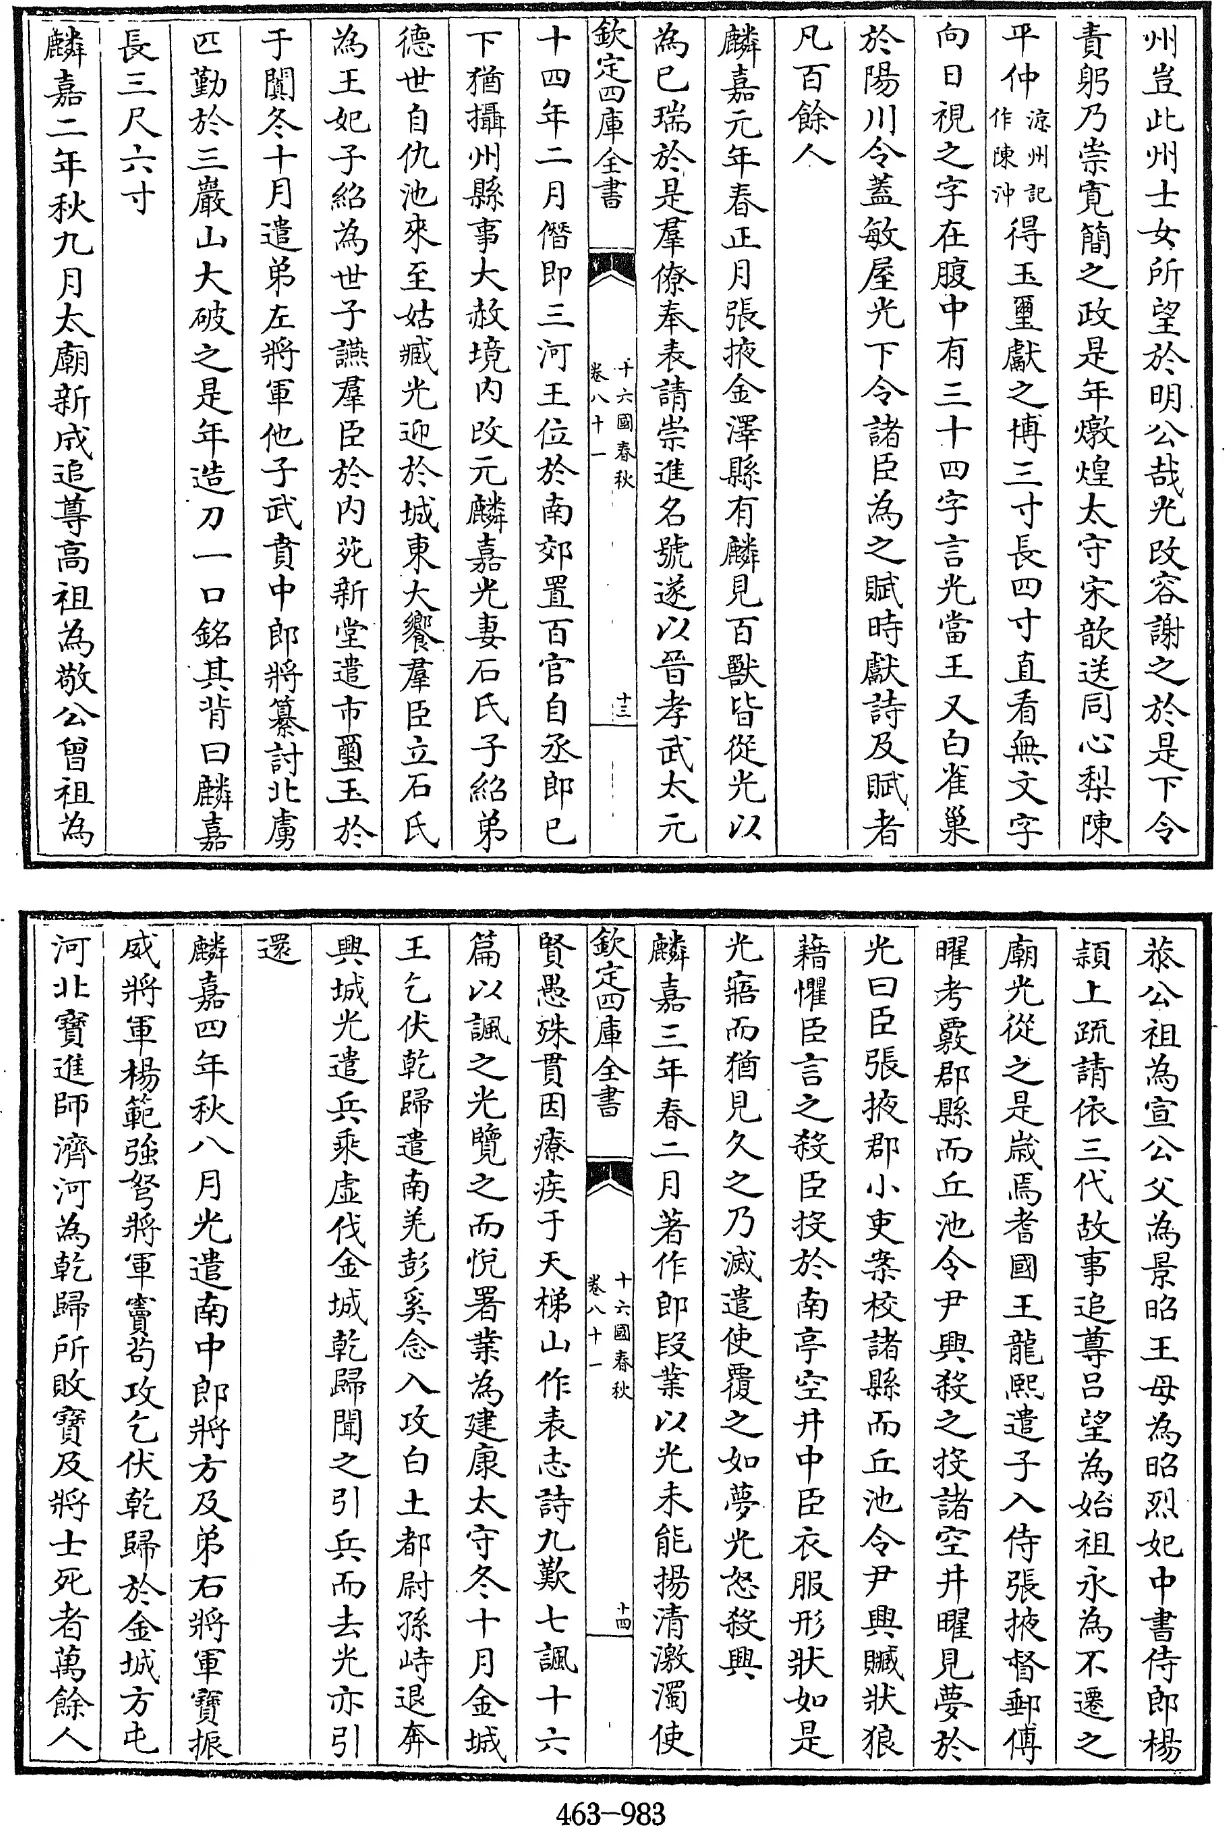 州豈此州士女所望於明公哉光改容謝之於是下令
責躬乃崇寬簡之政是年燉煌太守宋歆送同心梨陳
平仲涼州記作陳沖得玉璽獻之博三寸長四寸直看無文字
向日視之字在腹中有三十四字言光當王又白雀巢
於陽川令蓋敏屋光下令諸臣為之賦時獻詩及賦者
凡百餘人
麟嘉元年春正月張掖金澤縣有麟見百獸皆從光以
為已瑞於是羣僚奉表請崇進名號遂以晉孝武太元
欽定四庫全書
十六國春秋
卷八十一
十三
十四年二月僭即三河王位於南郊置百官自丞郎已
下猶攝州縣事大赦境內改元麟嘉光妻石氏子紹弟
德世自仇池來至姑臧光迎於城東大饗羣臣立石氏
為王妃子紹為世子讌羣臣於內苑新堂遣市璽玉於
于闐冬十月遣弟左將軍他子武賁中郎將纂討北虜
匹勤於三巖山大破之是年造刀一口銘其背曰麟嘉
長三尺六寸
麟嘉二年秋九月太廟新成追尊高祖為敬公曾祖為
恭公祖為宣公父為景昭王母為昭烈妃中書侍郎楊
潁上疏請依三代故事追尊呂望為始祖永為不遷之
廟光從之是歲焉耆國王龍熙遣子入侍張掖督郵傅
曜考覈郡縣而丘池令尹興殺之投諸空井曜見夢於
光曰臣張掖郡小吏案校諸縣而丘池令尹興贓狀狼
藉懼臣言之殺臣投於南亭空井中臣衣服形狀如是
光寤而猶見久之乃滅遣使覆之如夢光怒殺興
麟嘉三年春二月著作郎段業以光未能揚清激濁使
欽定四庫全書
十六國春秋
卷八十一
十四
賢愚殊貫因療疾于天梯山作表志詩九歎七諷十六
篇以諷之光覽之而悅署業為建康太守冬十月金城
王乞伏乾歸遣南羌彭奚念入攻白土都尉孫峙退奔
興城光遣兵乘虛伐金城乾歸聞之引兵而去光亦引
還
麟嘉四年秋八月光遣南中郎將方及弟右將軍寶振
威將軍楊範強弩將軍竇苟攻乞伏乾歸於金城方屯
河北寶進師濟河為乾歸所敗寶及將士死者萬餘人
463-983